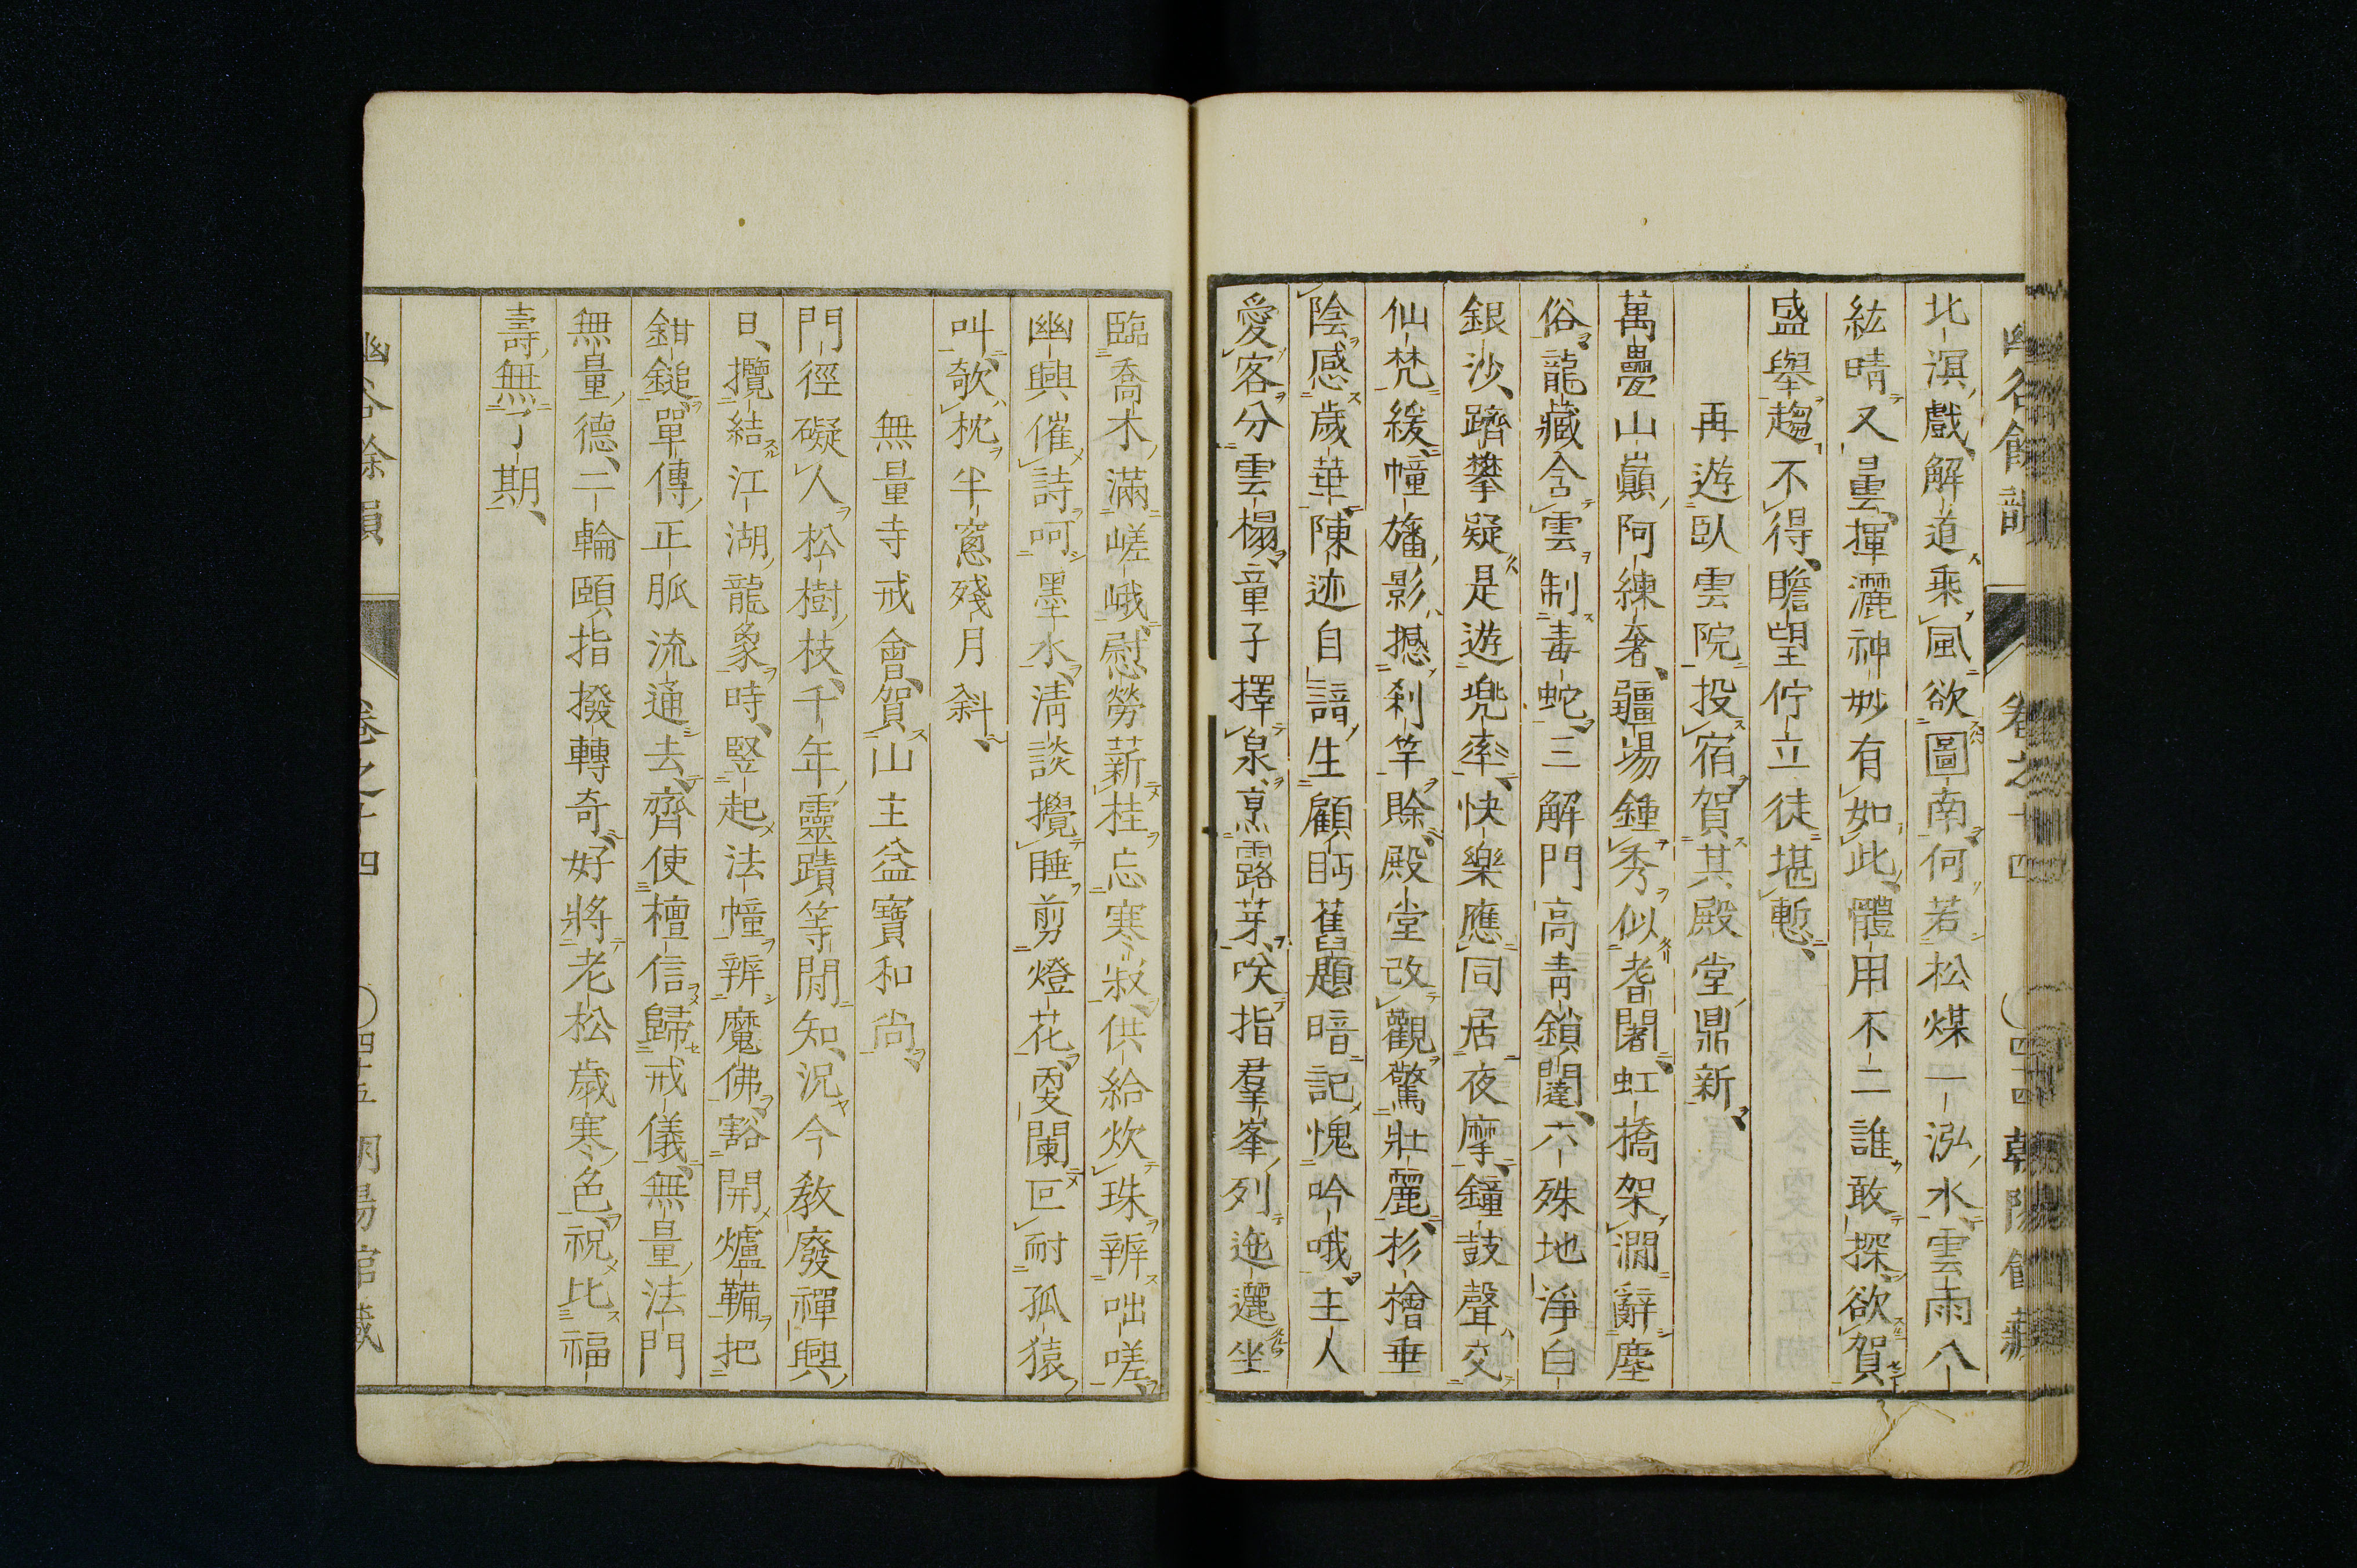 幽谷餘韻 卷之十四 四十四 朝陽館藏
北溟戲解道乘風欲圖南何若松煤一泓水雲雨八
紘晴又曇揮灑神妙有如此體用不二誰敢探欲賀
盛舉趨不得瞻望佇立徒堪慙
再遊臥雲院投宿賀其殿堂鼎新
萬疊山巓阿練奢疆場鍾秀似耆闍虹橋架澗辭塵
俗龍藏含雲制毒蛇三解門高青鎖闥六殊地淨白
銀沙躋攀疑是遊兜率快樂應同居夜摩鐘鼓聲交
仙梵緩幢旛影撼刹竿賖殿堂改觀驚壯麗杉檜垂
陰感歲華陳迹自諳生顧眄舊題暗記愧吟哦主人
愛客分雲榻童子擇泉烹露芽咲指羣峯列迤邐坐
臨喬木滿嵯峨慰勞薪桂忘寒寂供給炊珠辨咄嗟
幽興催詩呵墨水淸談攪睡剪燈花夜闌叵耐孤猿
叫欹枕半窻殘月斜
無量寺戒會賀山主益寶和尚
門徑礙人松樹枝千年靈蹟等閒知況今敎廢禪興
日攬結江湖龍象時竪起法幢辨魔佛豁開爐鞴把
鉗鎚單傳正脈流通去齊使檀信歸戒儀無量法門
無量德二輪頤指撥轉奇好將老松歲寒色祝比福
壽無了期
幽谷餘韻 卷之十四 四十五 朝陽館藏